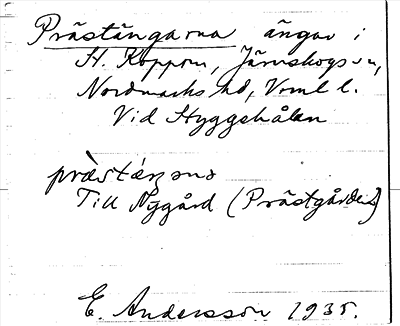 Prästängarna ängar i
St. Koppom, Järnskogs sn,
Nordmarks hd, Vrml l.
Vid Hyggehålan
præ̀stǽŋạṇa
Till Nygård (Prästgården)
E. Andersson 1935.